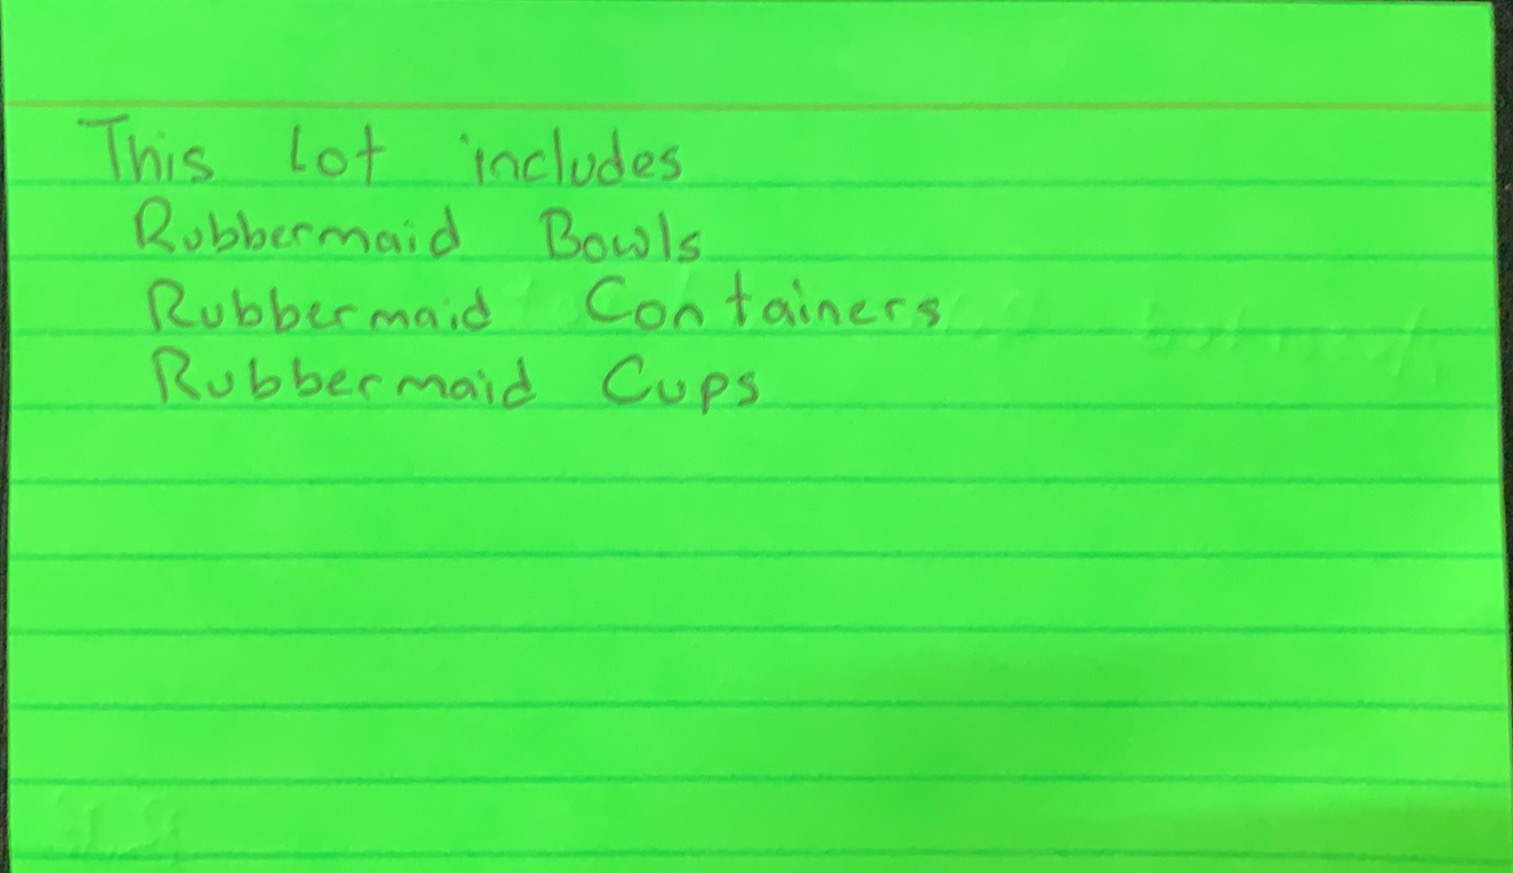 This Lot includes
Rubbermaid Bowls
Rubbermaid Containers
Rubbermaid Cups